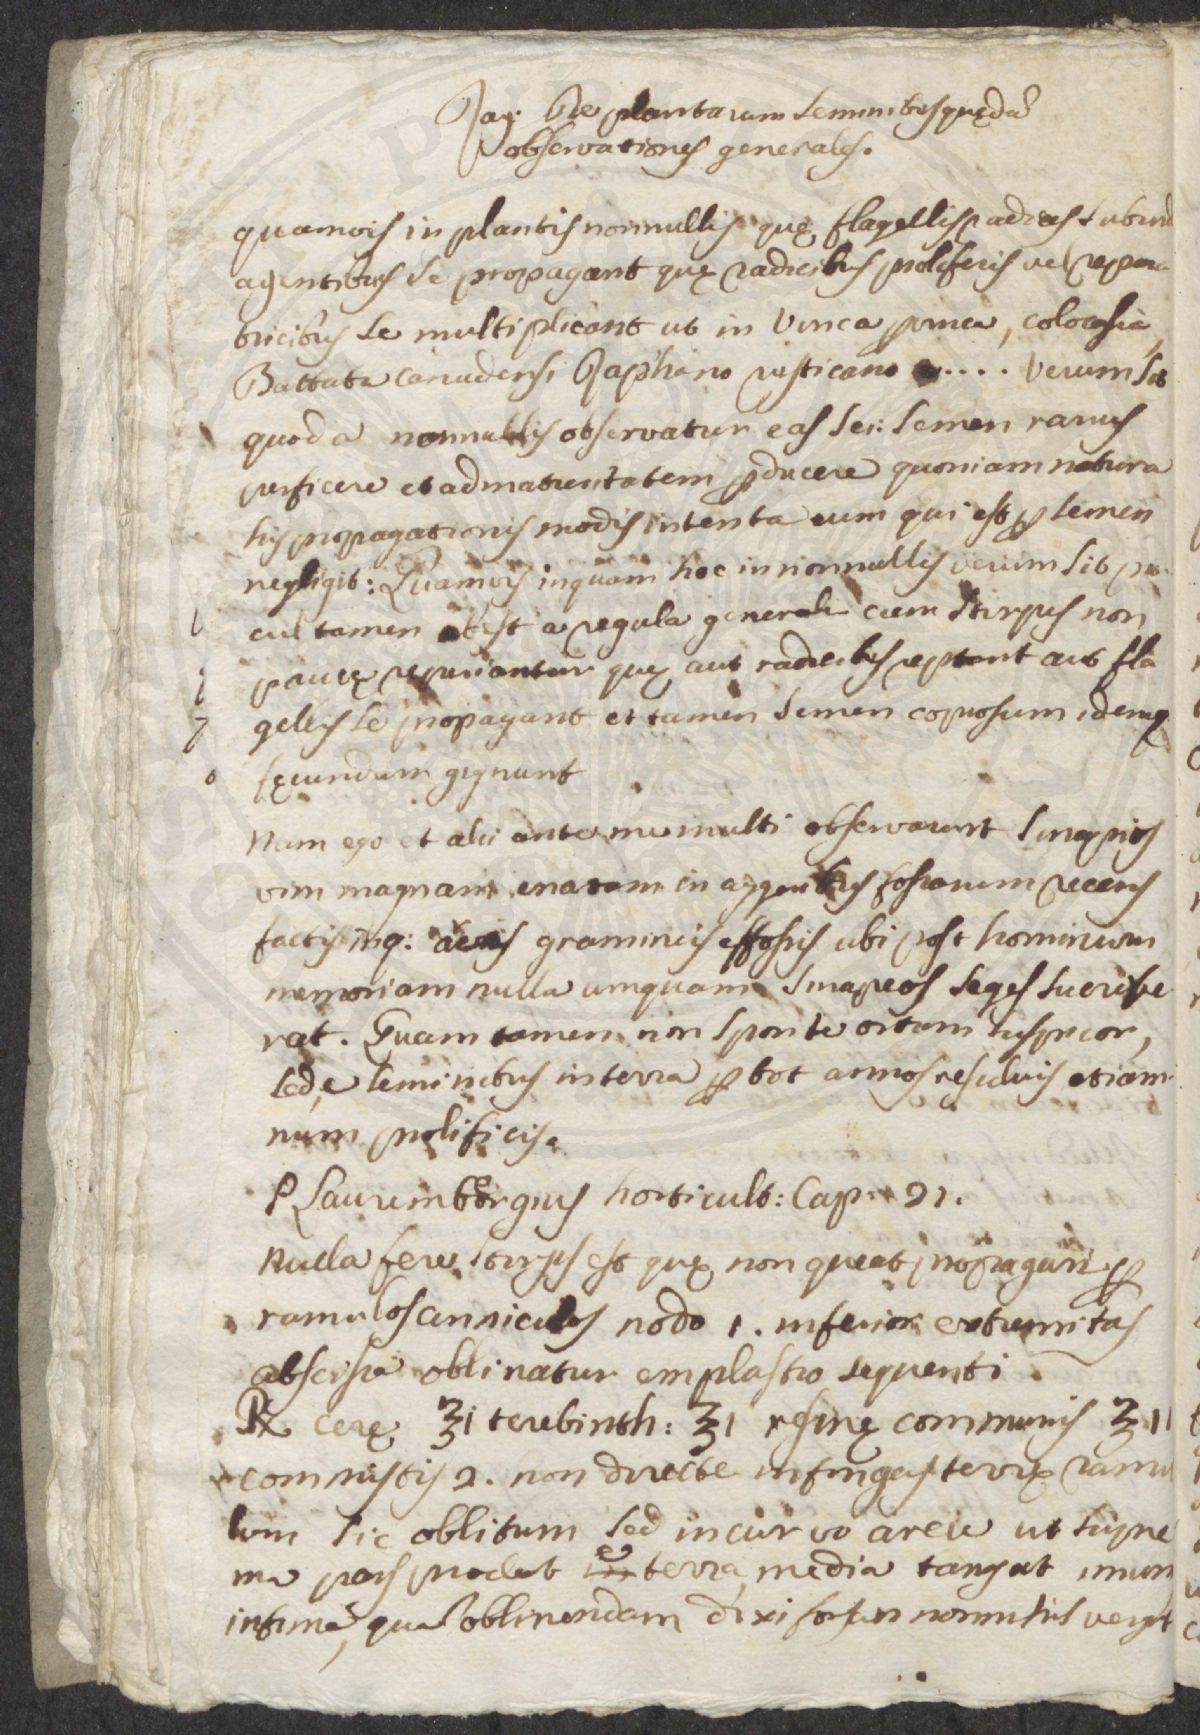 Ray: De plantarum seminibus quędã
observationes generales.
quamvis in plantis nonnullis quę flagellis radices subind
agentibus se propagant quę radicibus proliferis vel repta
tricibus se multiplicant ut in Vinca pervinca, colocasia,
Battata canadensi Raphano rusticano .... verum sit
quod a nonnullis observatur eas sci: semen rarius
perficere et ad maturitatem ꝓducere quoniam natura
his propagationis modis intenta eum qui est ꝑ semen
negligit: Quamvis inquam hoc in nonnullis verum sit pro
cul tamen abest a regula generali cum stirpes non
paucę reperiantur quę aut radicibus reptant aut fla
gellis se propagant et tamen semen copiosum idemq
fęcundum gignunt
Nam ego et alii ante me multi observarunt sinapios
vim magnam enatam in aggeribus fossarum recens
factis inq: areis gramineis effossis ubi post hominum
memoriam nulla umquam sinapeos seges succreve
rat. Quam tamen non sponte ortam suspicor,
sed e seminibus in terra ꝑ tot annos residuis etiam
num prolificis.
P Laurembergius horticult: Cap: 21.
Nulla fere stirps est quę non queat propagari ꝑ
ramulos nodo 1. inferior extremitas
abscissa oblinatur emplastro sequenti
℞ cerę ℥i terebinth: ℥i resinę communis ℥ii
commistis 2. non directe infingas terrę ramu
lum sic oblitum sed incurvo arcu ut supre
ma pars prodeat e terra, media tangat imum
infima, qua oblinendam dixi sursum nonnihil vergat